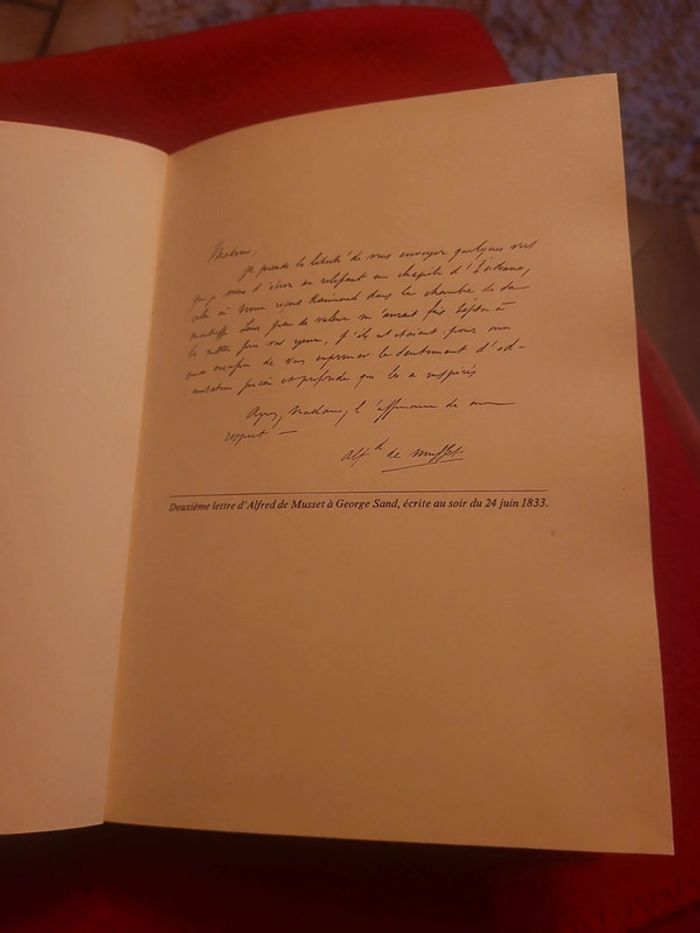 Madame,
Je prends la liberté de vous envoyer quelques vers
que je viens d'écrire en relisant un chapitre d'Indiana,
celui où Noun reçoit Raimond dans la chambre de sa
maîtresse. Leur peu de valeur m'aurait fait hésiter à
les mettre sous vos yeux, s'ils n'étaient pour moi
une occasion de vous exprimer le sentiment d'ad-
miration sincère et profonde qui les a inspirés
Agréez, Madame, l'assurance de mon
respect —
Alf^d de Musset
Deuxième lettre d'Alfred de Musset à George Sand, écrite au soir du 24 juin 1833.